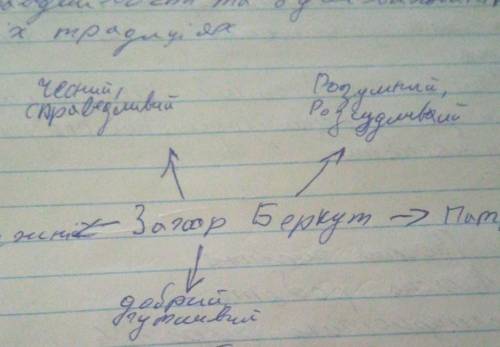 х традиціях
Чесний,
справедливий
Розумний,
Розсудливий
Захар Беркут → Пат
добрий,
чутливий